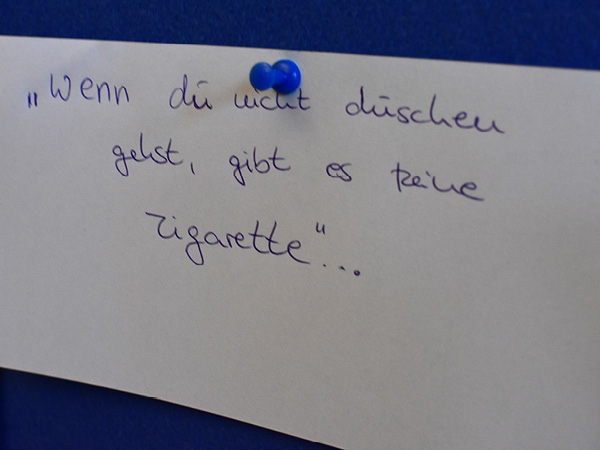 „Wenn du nicht duschen
gehst, gibt es keine
Zigarette"...